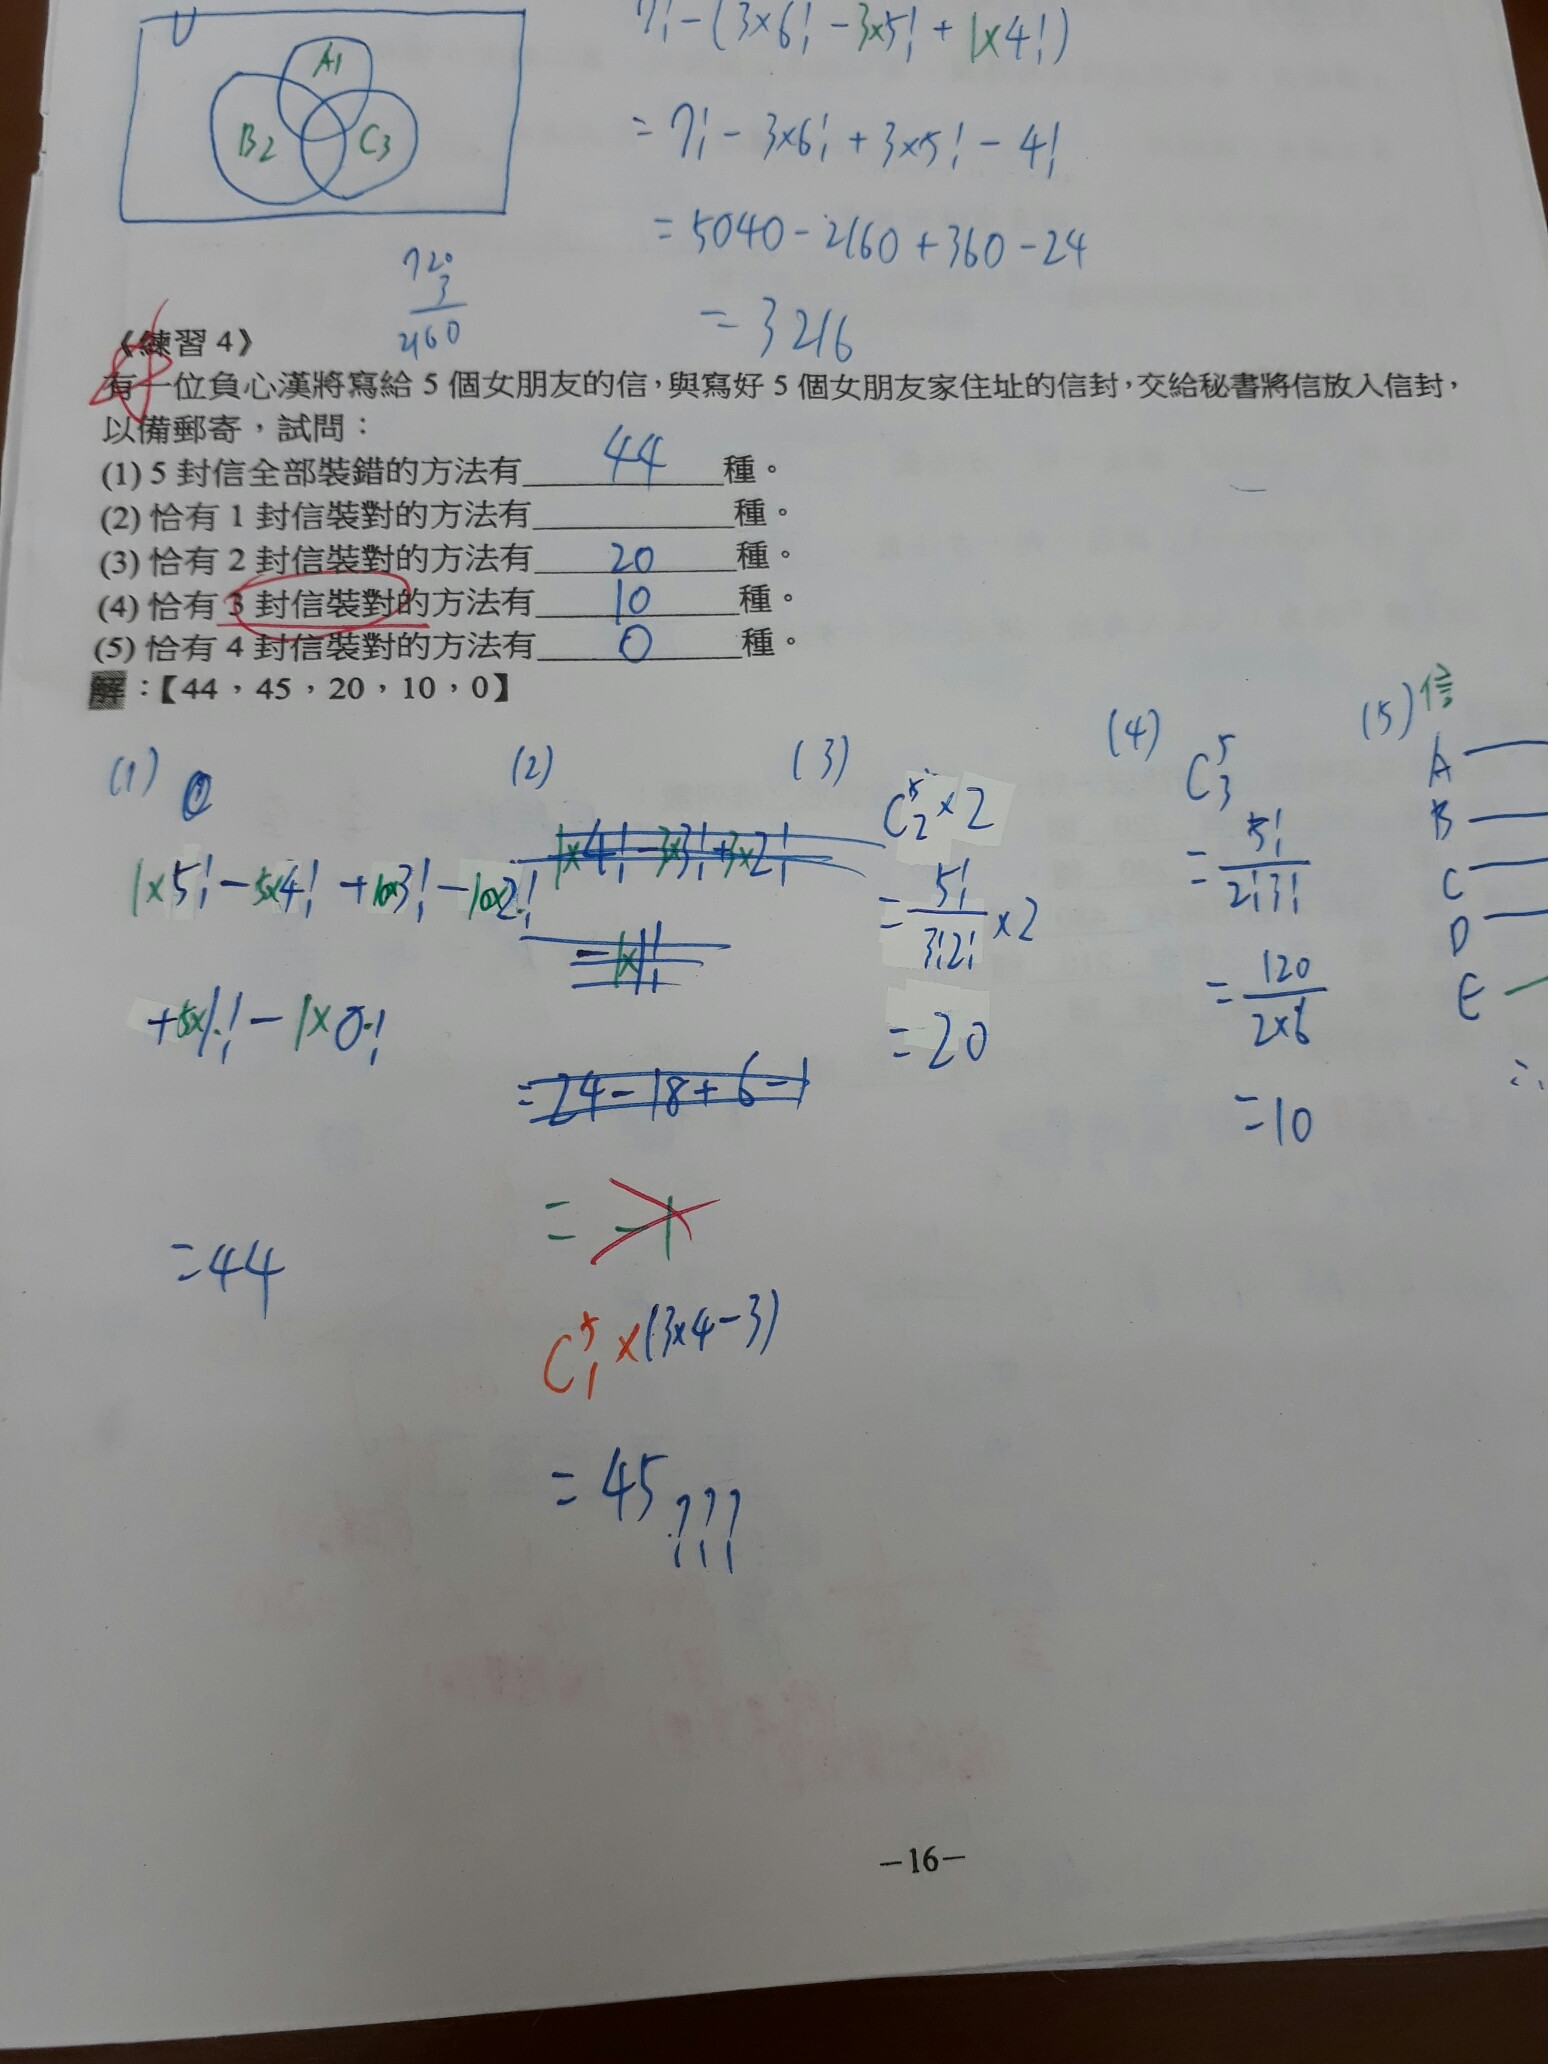 U
A1
B2 C3
7! - (3×6! - 3×5! + 1×4!)
= 7! - 3×6! + 3×5! - 4!
= 5040 - 2160 + 360 - 24
= 3216
720
3
2160
《練習 4》
有一位負心漢將寫給 5 個女朋友的信，與寫好 5 個女朋友家住址的信封，交給秘書將信放入信封，
以備郵寄，試問：
(1) 5 封信全部裝錯的方法有 44 種。
(2) 恰有 1 封信裝對的方法有 種。
(3) 恰有 2 封信裝對的方法有 20 種。
(4) 恰有 3 封信裝對的方法有 10 種。
(5) 恰有 4 封信裝對的方法有 0 種。
解：【44，45，20，10，0】
(1)
1×5! - 5×4! + 10×3! - 10×2!
+ 5×1! - 1×0!
= 44
(2)
1×4! - 3×3! + 3×2!
- 1×1!
= 24 - 18 + 6 - 1
= -1
C⁵₁ × (3×4-3)
= 45 ???
(3)
C⁵₂ × 2
= 5!/3!2! × 2
= 20
(4)
C⁵₃
= 5!/2!3!
= 120/2×6
= 10
(5) 信
A
B
C
D
E
∴
-16-